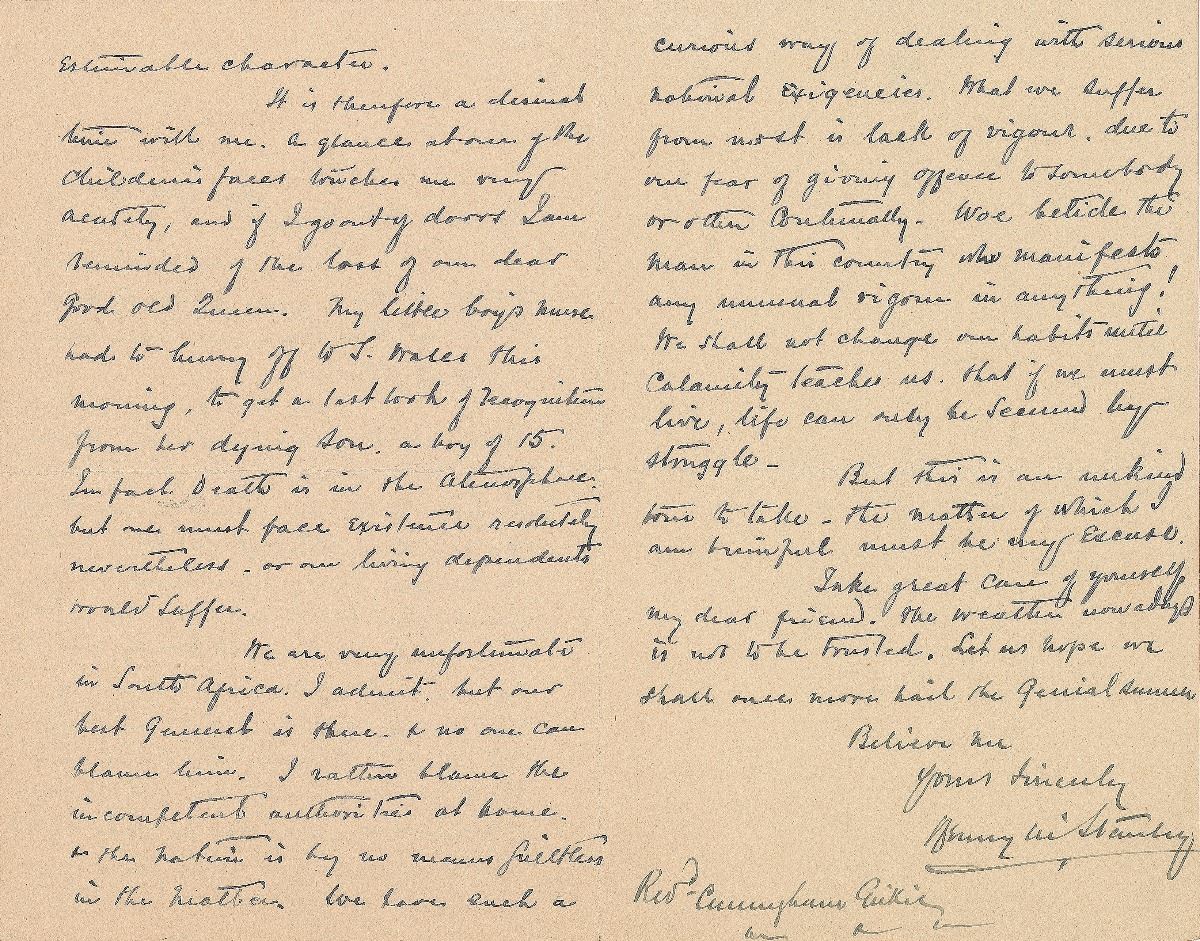 Estimable character.
It is therefore a dismal
time with me. A glance at one of the
children's faces touches me very
acutely, and if I go out of doors I am
reminded of the loss of our dear
good old Queen. My little boy's nurse
had to hurry off to S. Wales this
morning, to get a last look of recognition
from her dying son, a boy of 15.
In fact Death is in the atmosphere.
but one must face Existence resolutely
nevertheless - or our living dependents
would suffer.
We are very unfortunate
in South Africa. I admit, but our
best General is there - & no one can
blame him. I rather blame the
incompetent authorities at home.
& the nation is by no means guiltless
in the matter. We have such a
curious way of dealing with serious
national exigencies. What we suffer
from most is lack of vigour, due to
our fear of giving offence to somebody
or other continually - Woe betide the
man in this country who manifests
any unusual vigour in anything!
We shall not change our habits until
calamity teaches us. that if we must
live, life can only be secured by
struggle -
But this is an unkind
tone to take - the matter of which I
am brimful must be my Excuse.
Take great care of yourself
my dear friend. The weather nowadays
is not to be trusted. Let us hope we
shall once more hail the Genial summer
Believe me
Yours Sincerely
Henry M Stanley
Revd Cunningham Geikie